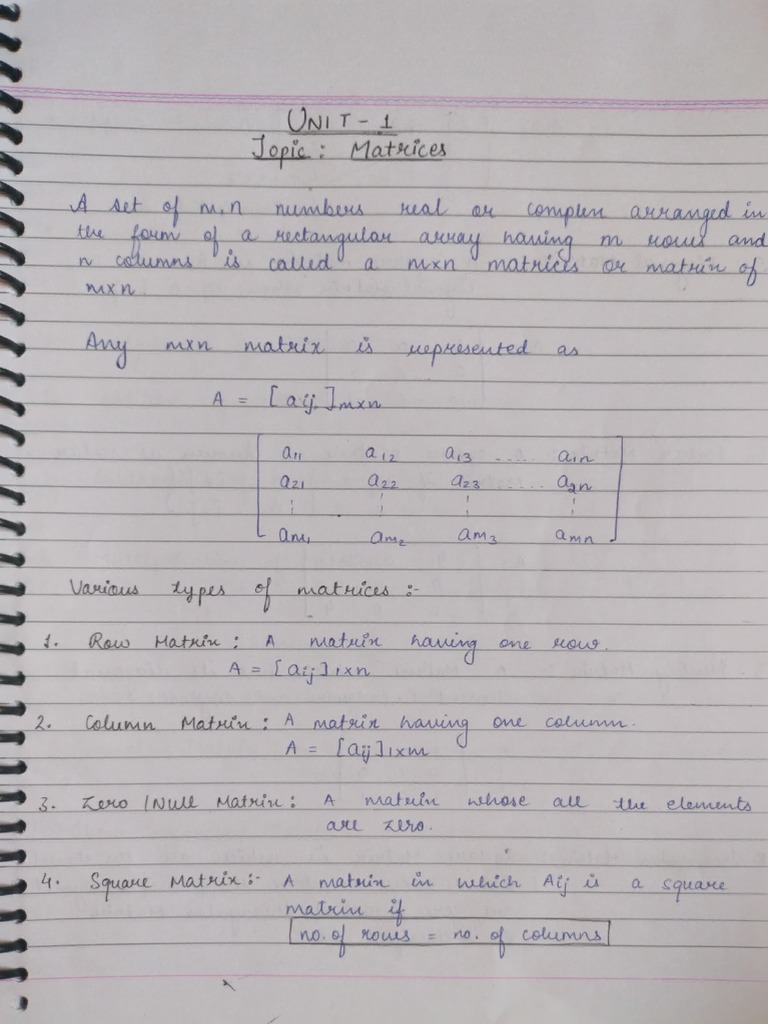 UNIT - 1
Topic: Matrices
A set of m,n numbers real or complex arranged in
the form of a rectangular array having m rows and
n columns is called a mxn matrices or matrix of
mxn.
Any mxn matrix is represented as
A = [aij]mxn
a11 a12 a13 ...... a1n
a21 a22 a23 ...... a2n
⋮ ⋮ ⋮ ⋮
am1 am2 am3 amn
Various types of matrices :-
1. Row Matrix : A matrix having one row.
A = [aij]1xn
2. Column Matrix : A matrix having one column.
A = [aij]1xm
3. Zero /Null Matrix : A matrix whose all the elements
are zero.
4. Square Matrix :- A matrix in which Aij is a square
matrix if
no. of rows = no. of columns